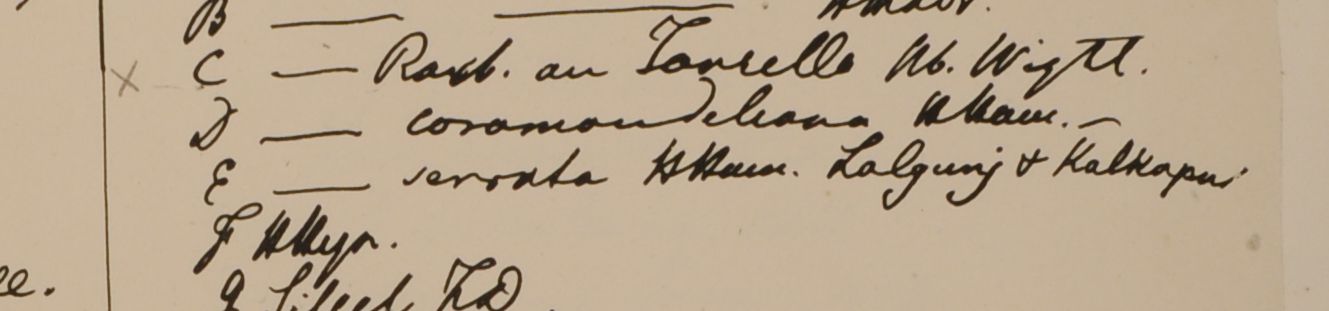 B — —
C — Roxb. an Torvelle Hb. Wight.
D — coromandeliana HHam. —
E — serrata HHam. Lalgunj & Kalkapur
F HHeyn.
G
ce.